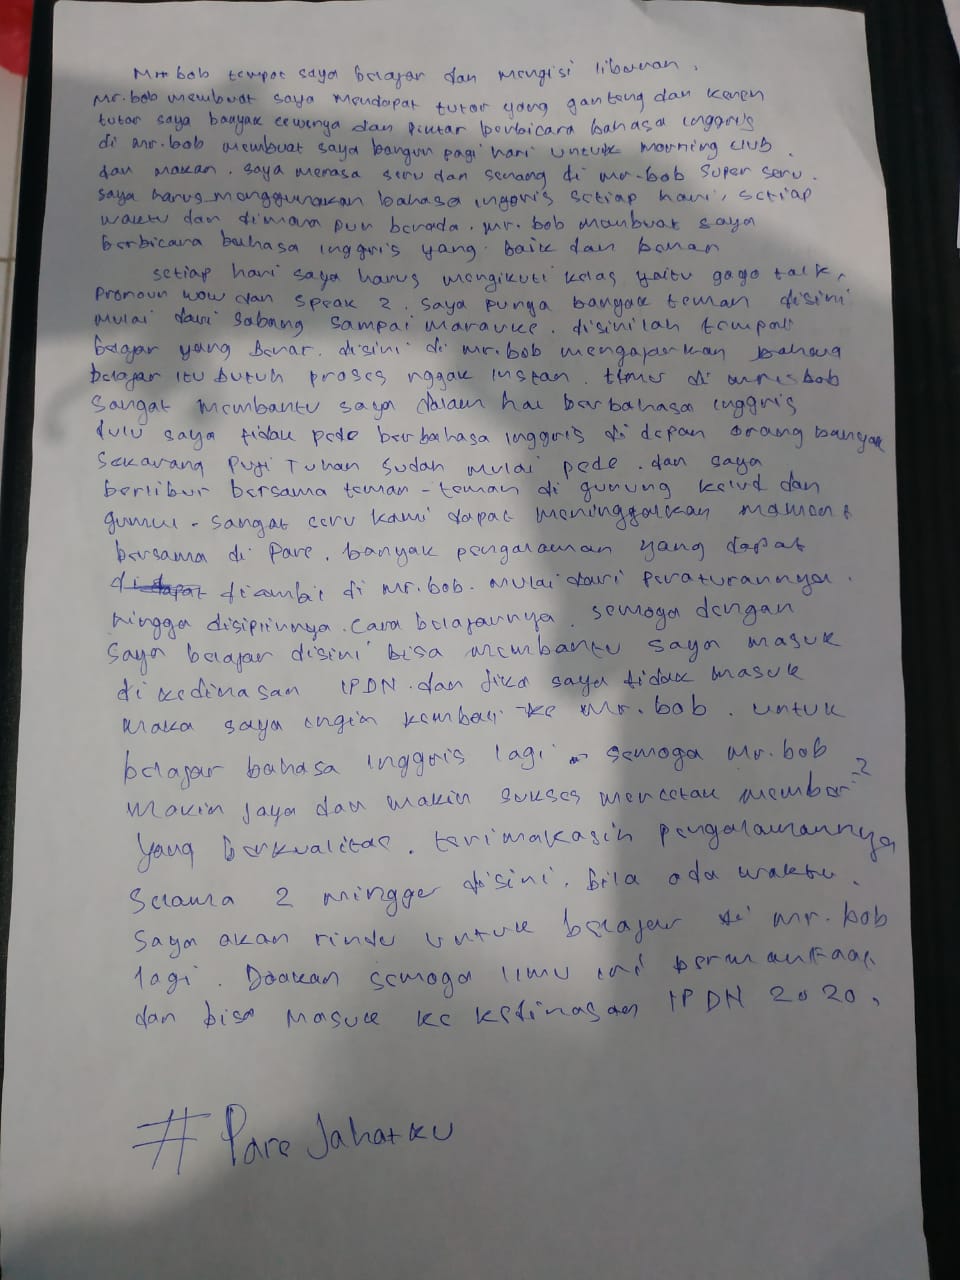 Mr. bob tempat saya belajar dan mengisi liburan.
Mr. bob membuat saya mendapat tutor yang ganteng dan keren
tutor saya banyak cewenya dan pintar berbicara bahasa inggris
di mr. bob membuat saya bangun pagi hari untuk morning club.
dan makan. saya merasa seru dan senang di mr. bob super seru.
saya harus menggunakan bahasa inggris setiap hari, setiap
waktu dan dimana pun berada. mr. bob membuat saya
berbicara bahasa inggris yang baik dan benar
setiap hari saya harus mengikuti kelas yaitu gago talk,
pronoun wow dan speak 2. saya punya banyak teman disini
mulai dari sabang sampai marauke. disinilah tempat
belajar yang benar. disini di mr. bob mengajarkan bahwa
belajar itu butuh proses nggak instan. di bob
sangat membantu saya dalam hal berbahasa inggris
dulu saya tidak pede berbahasa inggris di depan orang banyak
sekarang puji Tuhan sudah mulai pede. dan saya
berlibur bersama teman-teman di gunung kelud dan
gumul. sangat seru kami dapat meninggalkan moment
bersama di Pare. banyak pengalaman yang dapat
diambil di mr. bob. mulai dari peraturannya.
hingga disiplinnya. cara belajarnya. semoga dengan
saya belajar disini bisa membantu saya masuk
di kedinasan IPDN. dan jika saya tidak masuk
maka saya ingin kembali ke Mr. bob. untuk
belajar bahasa inggris lagi. semoga Mr. bob
makin jaya dan makin sukses mencetak member-2
yang berkualitas. terimakasih pengalamannya
selama 2 minggu disini. bila ada waktu.
saya akan rindu untuk belajar di mr. bob
lagi. Doakan semoga ilmu ini bermanfaat
dan bisa masuk ke kedinasan IPDN 2020.
#Pare Jahatku